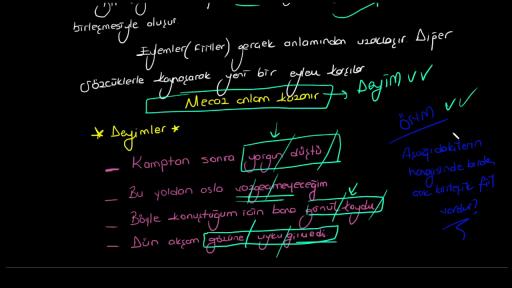 birleşmesiyle oluşur
Eylemler (fiiller) gerçek anlamından uzaklaşır Diğer
sözcüklerle kaynaşarak yeni bir eylem karşılar
Mecaz anlam kazanır → Deyim
* Deyimler *
- Kamptan sonra yorgun düştü
- Bu yoldan asla vazgeçmeyeceğim
- Böyle konuştuğum için bana gönül koydu
- Dün akşam gözüne uyku girmedi
ÖSYM
Aşağıdakilerin
hangisinde birden
çok birleşik fiil
vardır?